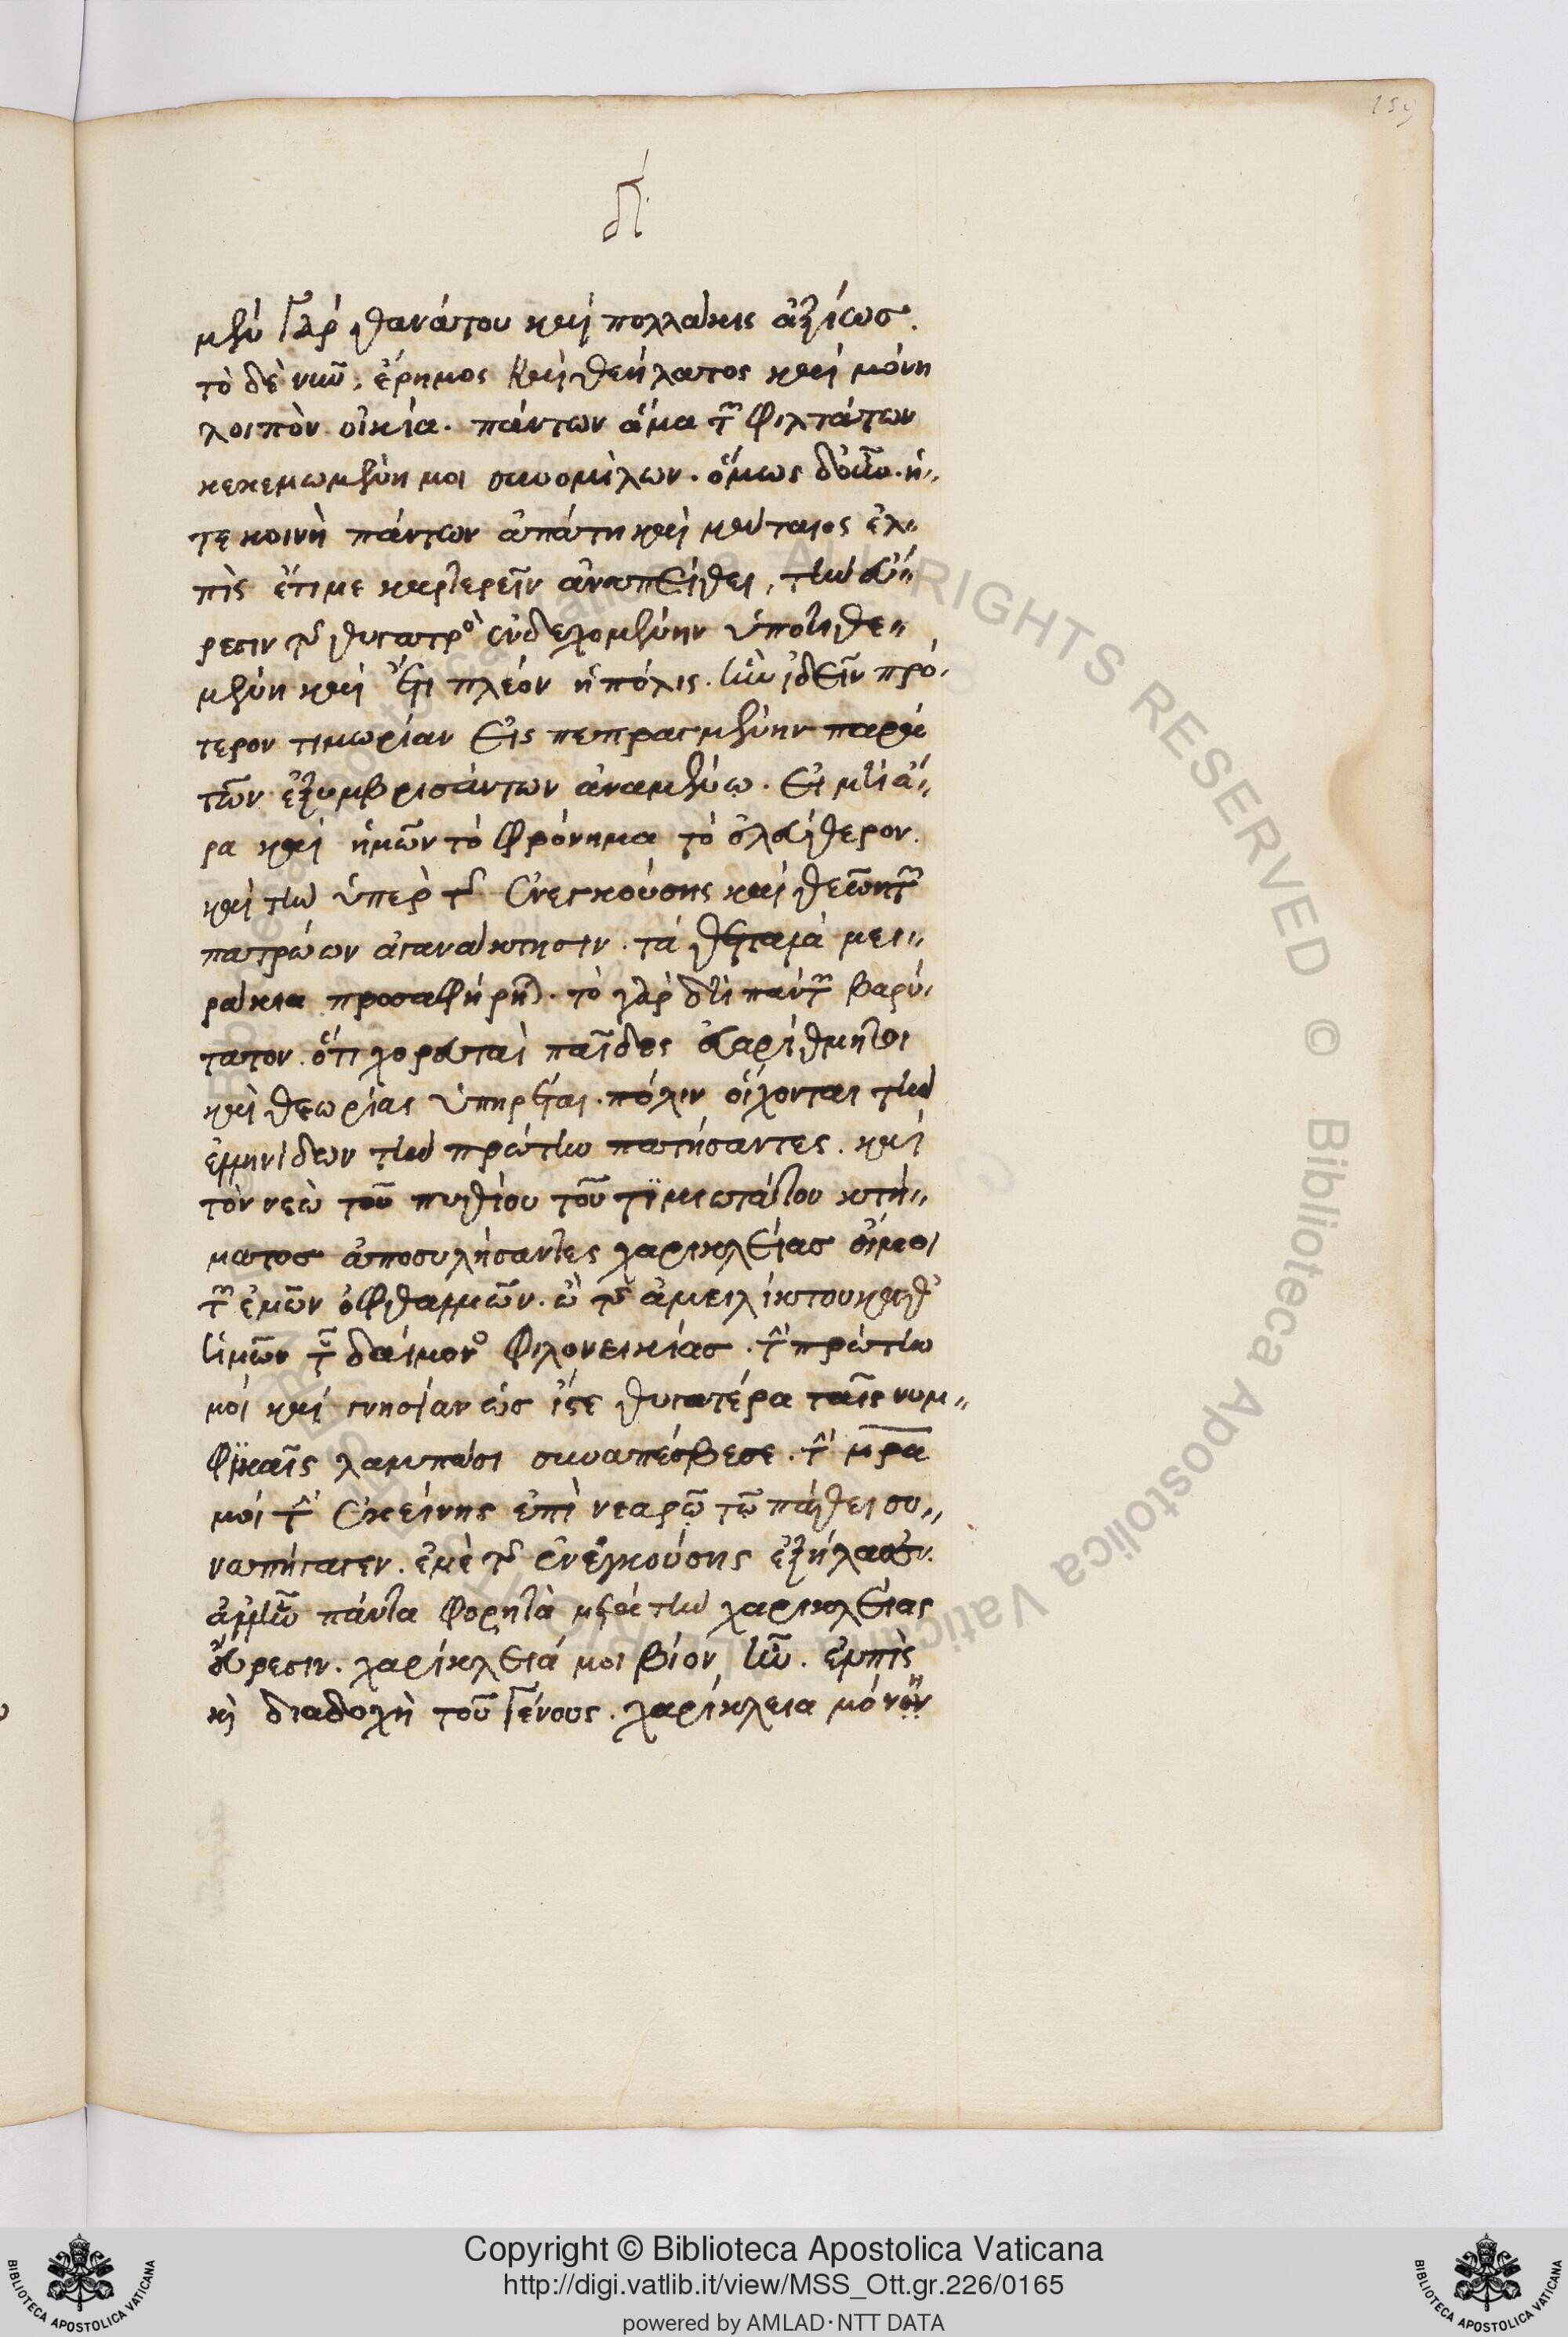 159
μὲν γὰρ θανάτου καὶ πολλάκις ἀξίως.
τὸ δὲ νῦν, ἔρημος καὶ θεήλατος καὶ μόνη
λοιπὸν οἰκία. πάντων ἅμα τῶν φιλτάτων
κεκενωμένη μοι συνομίλων. ὅμως δ' οὖν. ἥ
τε κοινὴ πάντων ἀπάτη καὶ μάταιος ἐλ
πὶς ἔτι με καρτερεῖν ἀναπείθει, τὴν εὕ
ρεσιν τῆς θυγατρὸς ἐνδεχομένην ὑποτιθε
μένη καὶ ἔτι πλέον ἡ πόλις. ἣν ἰδεῖν πρό
τερον τιμωρίαν εἰσπεπραγμένην παρὰ
τῶν ἐξυμβρισάντων ἀναμένω. εἰ μὴ ἄ
ρα καὶ ἡμῶν τὸ φρόνημα τὸ ἐλεύθερον.
καὶ τὴν ὑπὲρ τῆς ἐνεγκούσης καὶ θεῶν τῶν
πατρώων ἀγανάκτησιν. τὰ θετταλὰ μει
ράκια προσαφήρηνται. τὸ γὰρ δὴ πάντων βαρύ
τατον. ὅτι χορευταὶ παῖδες εὐαρίθμητοι
καὶ θεωρίας ὑπηρέται. πόλιν οἴχονται τὴν
ἑλληνίδων τὴν πρώτην πατήσαντες. καὶ
τὸν νεὼ τοῦ πυθίου τοῦ τιμιωτάτου κτή
ματος ἀποσυλήσαντες χαρικλείας οἴμοι
τῶν ἐμῶν ὀφθαλμῶν. ὢ τῆς ἀμειλίκτου καθ'
ἡμῶν τοῦ δαίμονος φιλονεικίας. τὴν πρώτην
μοι καὶ γνησίαν ὡς ἴστε θυγατέρα ταῖς νυμ
φικαῖς λαμπάσι συναπέσβεσε. τὴν μρα
μοι τὴν ἐκείνης ἐπὶ νεαρῷ τῷ πάθει συ
ναπήγαγεν. ἐμὲ τῆς ἐνεγκούσης ἐξήλασεν.
ἀλλ' ἦν πάντα φορητὰ μετὰ τὴν χαρικλείας
εὕρεσιν. χαρίκλειά μοι βίος ἦν. ἐλπὶς
καὶ διαδοχὴ τοῦ γένους. χαρίκλεια μόνη
© Biblioteca Apostolica Vaticana ALL RIGHTS RESERVED © Biblioteca Apostolica Vaticana
Copyright © Biblioteca Apostolica Vaticana
http://digi.vatlib.it/view/MSS_Ott.gr.226/0165
powered by AMLAD·NTT DATA
BIBLIOTECA APOSTOLICA VATICANA
BIBLIOTECA APOSTOLICA VATICANA